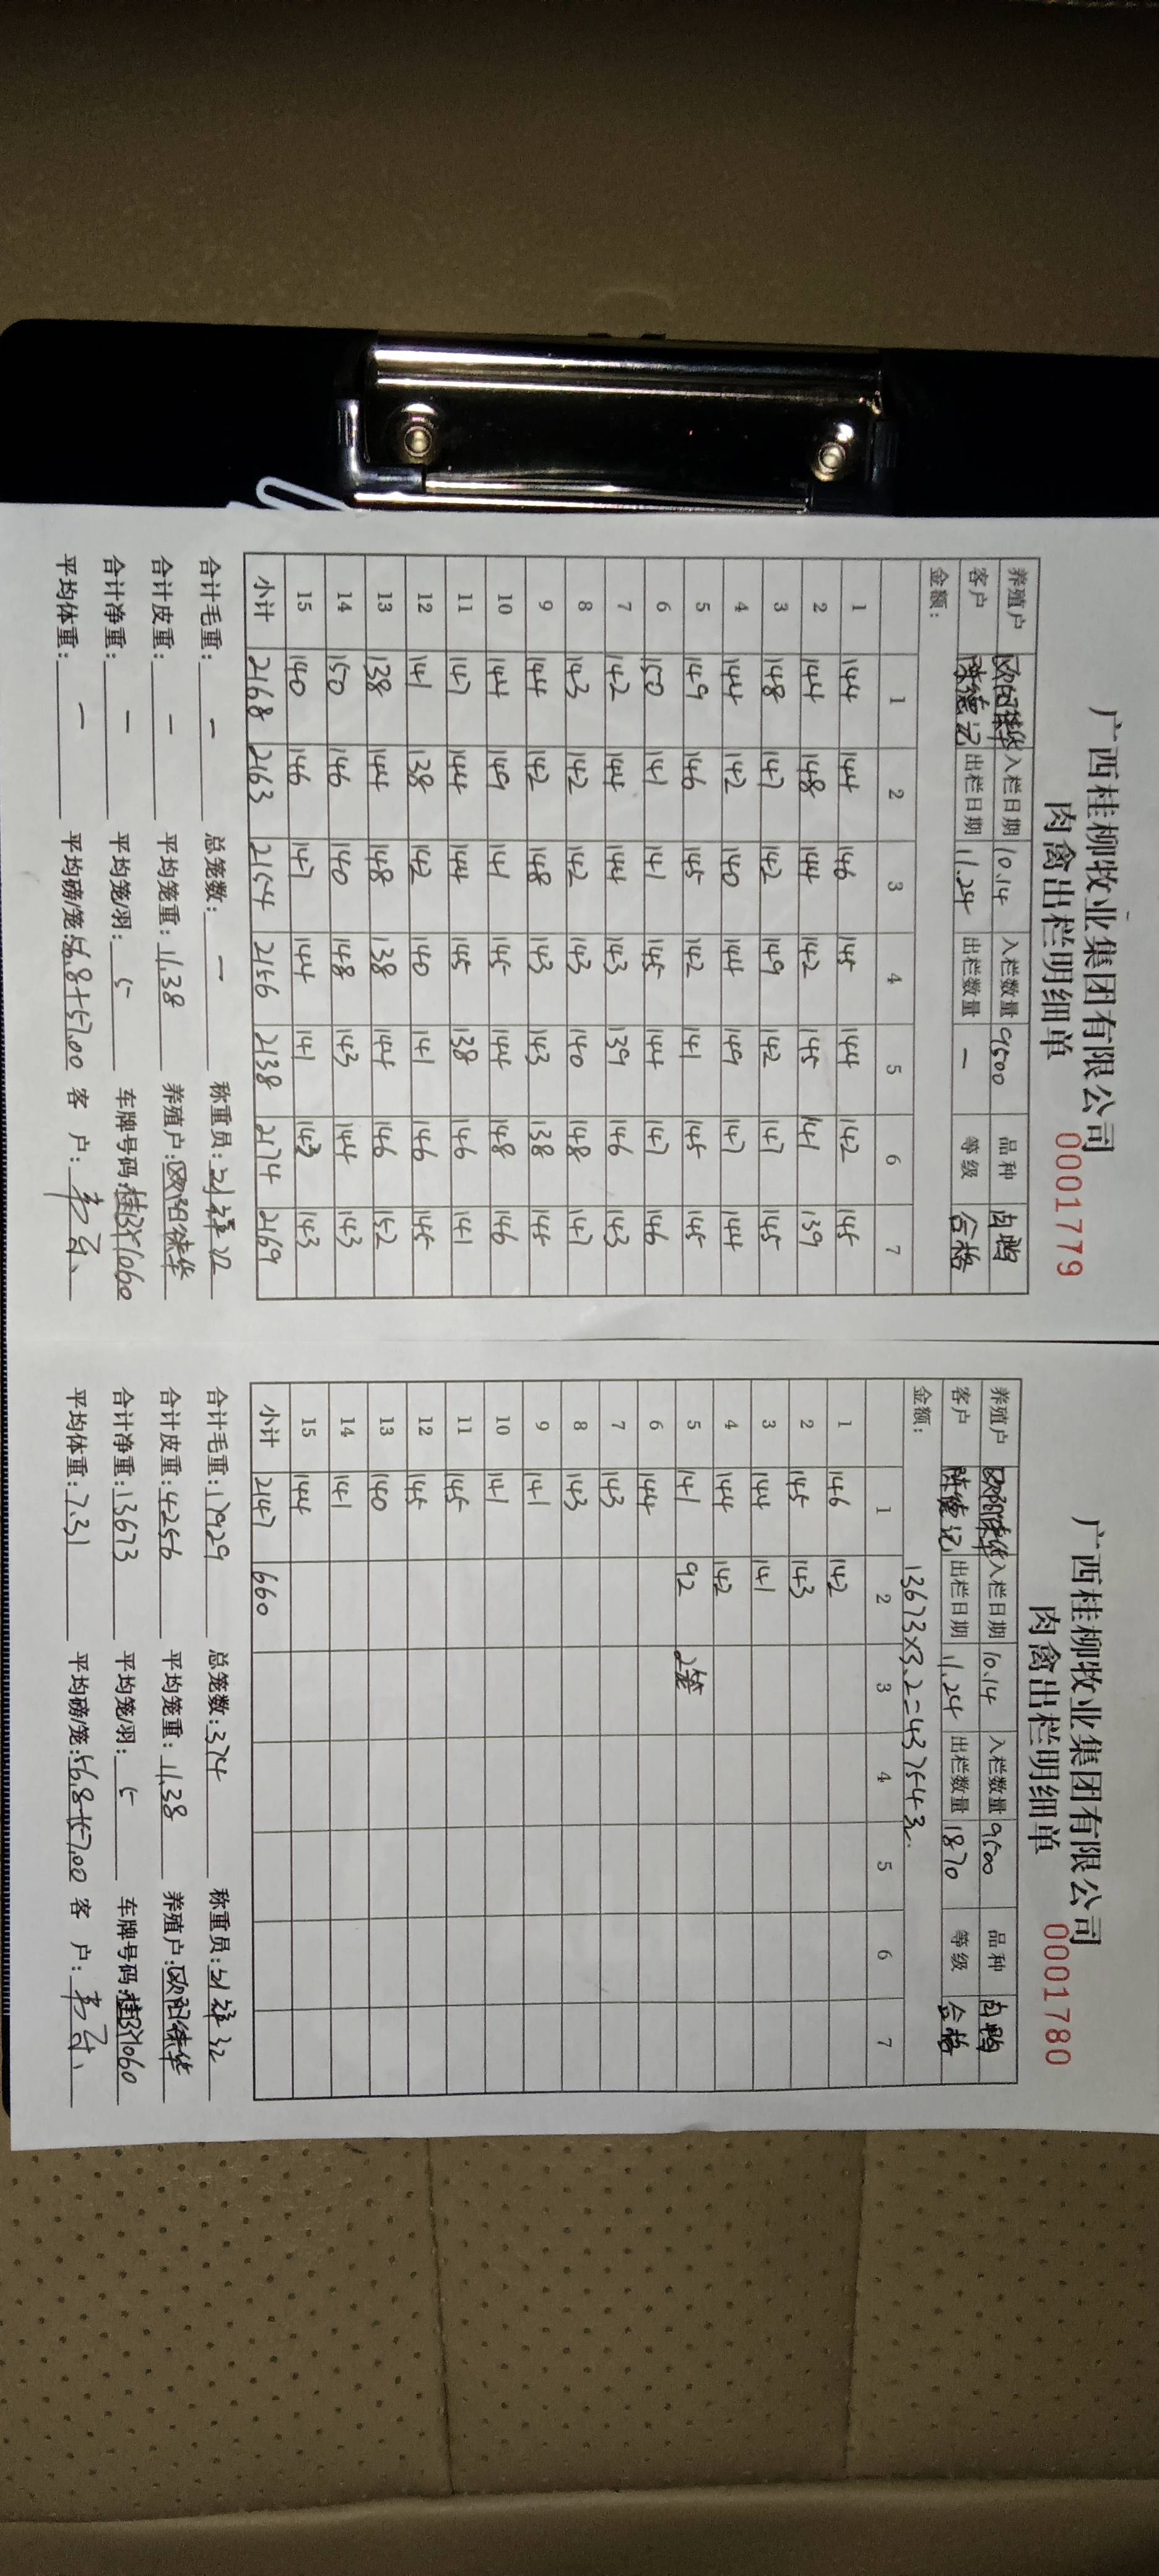 广西桂柳牧业集团有限公司
肉禽出栏明细单
0001779
养殖户 入栏日期 10.14 入栏数量 9500 品种 肉鸭
客户 陈德记 出栏日期 11.24 出栏数量 一 等级 合格
金额：
1 2 3 4 5 6 7
1 144 144 146 145 144 142 145
2 144 148 144 142 145 141 139
3 148 147 142 149 142 147 145
4 144 142 140 144 149 147 144
5 149 146 145 142 141 145 145
6 150 141 141 145 144 147 146
7 142 144 144 143 139 146 143
8 143 142 142 143 140 148 147
9 144 142 148 143 143 138 144
10 144 149 141 145 144 148 146
11 147 144 144 145 138 146 141
12 141 138 142 140 141 146 145
13 138 144 148 138 144 146 152
14 150 146 140 148 143 144 143
15 140 146 147 144 141 143 143
小计 2168 2163 2154 2156 2138 2174 2169
合计毛重： 一 总笼数： 一 称重员：
合计皮重： 一 平均笼重：11.38 养殖户：
合计净重： 一 平均笼/羽： 5 车牌号码：桂
平均体重： 一 平均磅/笼：56.8+57.00 客 户：
广西桂柳牧业集团有限公司
肉禽出栏明细单
0001780
养殖户 入栏日期 10.14 入栏数量 9500 品种 肉鸭
客户 陈德记 出栏日期 11.24 出栏数量 1870 等级 合格
金额： 13673×3.2=43754
1 2 3 4 5 6 7
1 146 142
2 145 143
3 144 141
4 144 142
5 141 92 2笼
6 144
7 143
8 143
9 141
10 141
11 145
12 145
13 140
14 141
15 144
小计 2147 660
合计毛重：17929 总笼数：374 称重员：
合计皮重：4256 平均笼重：11.38 养殖户：
合计净重：13673 平均笼/羽： 5 车牌号码：桂
平均体重：7.31 平均磅/笼：56.8+57.00 客 户：